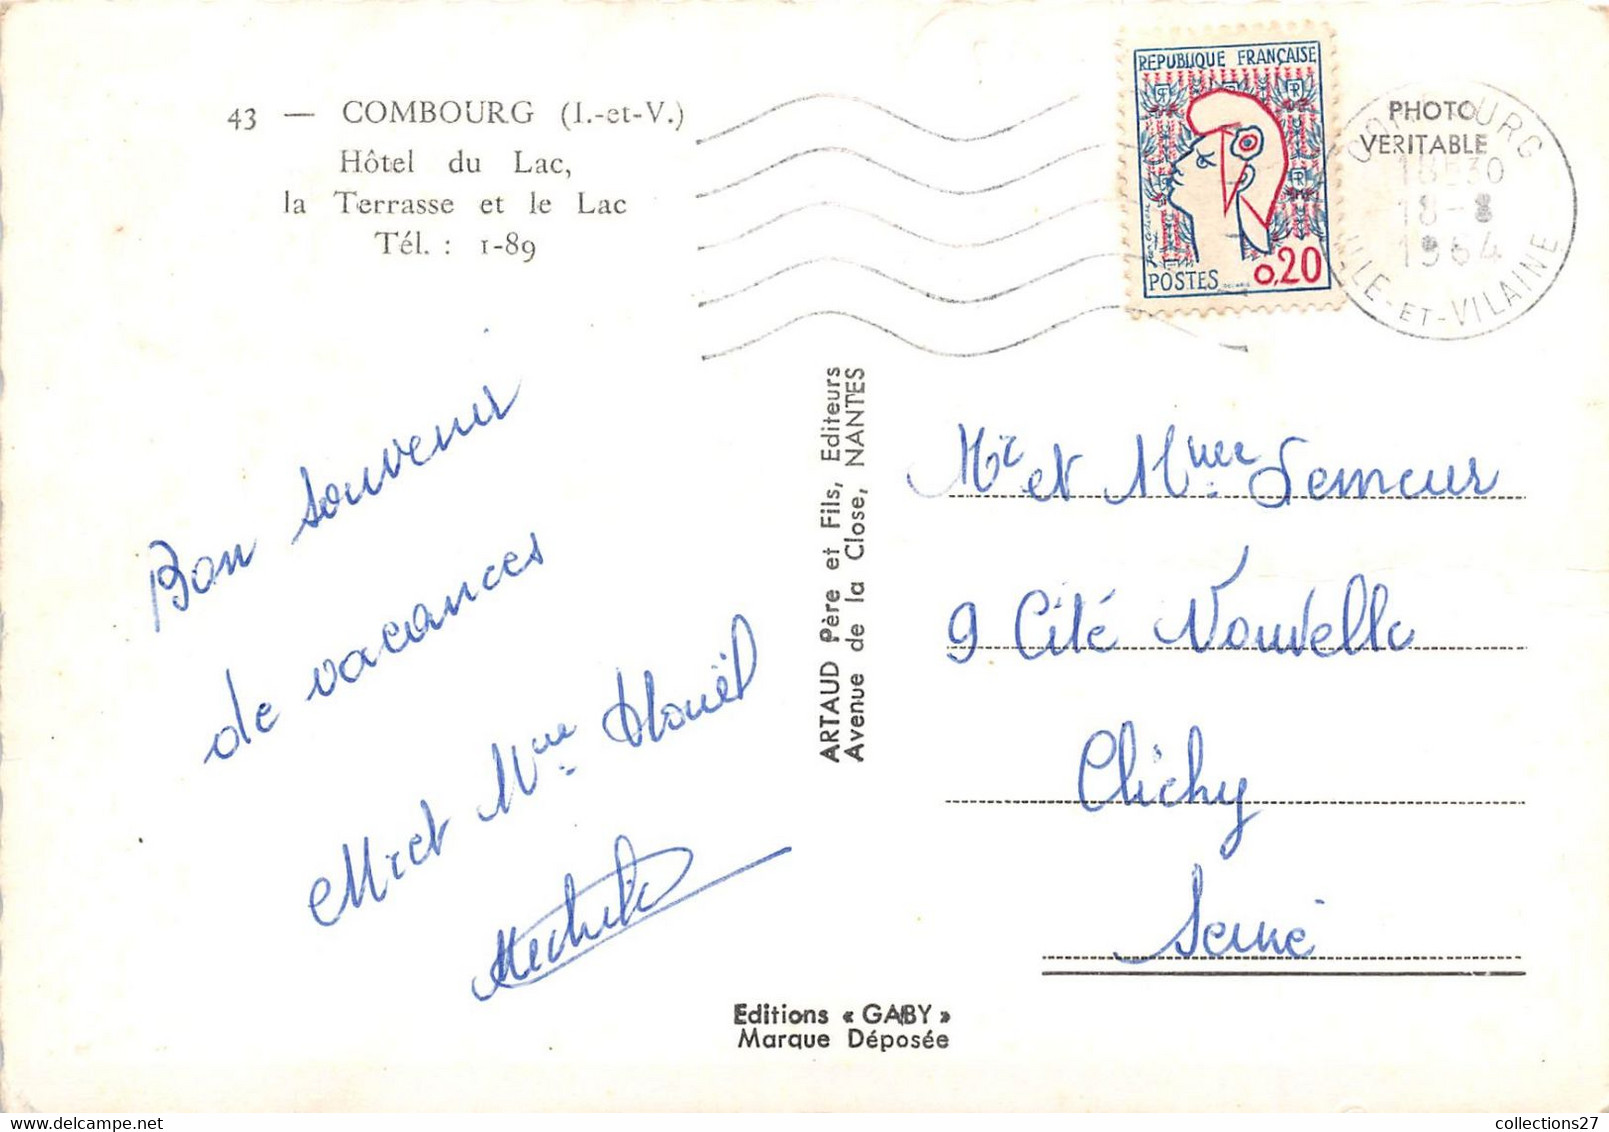 43 — COMBOURG (I.-et-V.)
Hôtel du Lac,
la Terrasse et le Lac
Tél. : 1-89
REPUBLIQUE FRANÇAISE
POSTES 0,20
PHOTO
VERITABLE
COMBOURG
18H30
18-8
1964
ILLE-ET-VILAINE
Bon souvenir
de vacances
Mr et Mme Houël
ARTAUD Père et Fils, Editeurs
Avenue de la Close, NANTES
Mr et Mme Lemeur
9 Cité Nouvelle
Clichy
Seine
Editions « GABY »
Marque Déposée
collections27